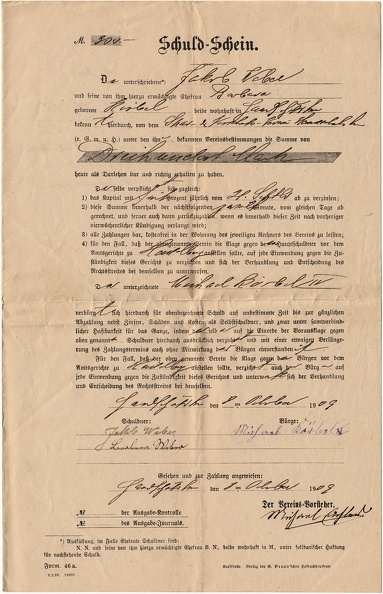 M. 300.—
Schuld-Schein.
D unterschriebene*) Jakob Weber
und seine von ihm hierzu ermächtigte Ehefrau Barbara
geborene beide wohnhaft in
bekennt hierdurch, von dem
(e. G. m. u. H.) unter den ihm bekannten Vereinsbestimmungen die Summe von
Dreihundert Mark
heute als Darlehen bar und richtig erhalten zu haben.
Derselbe verpflichtet sich zugleich:
1) das Kapital mit Prozent jährlich vom ab zu verzinsen;
2) diese innerhalb der nächstfolgenden Monate, vom gleichen Tage ab
gerechnet, und ferner auch dann zurückzuzahlen, wenn es innerhalb dieser Zeit nach vorheriger
vierwöchentlicher Kündigung verlangt wird;
3) alle Zahlungen bar, kostenfrei in der Wohnung des jeweiligen Rechners des Vereins zu leisten;
4) für den Fall, daß der obengenannte Verein die Klage gegen den Hauptschuldner vor dem
Amtsgerichte zu anstellen sollte, auf jede Einwendung gegen die Zu-
ständigkeit dieses Gerichtes zu verzichten und sich der Verhandlung und Entscheidung des
Rechtsstreites bei demselben zu unterwerfen.
D unterzeichnete Michael
verbürgt sich hierdurch für obenbezeichnete Schuld auf unbestimmte Zeit bis zur gänzlichen
Abzahlung nebst Zinsen, Schäden und Kosten als Selbstschuldner, und zwar unter samtverbind-
licher Haftbarkeit für das Ganze, indem er der Einrede der Vorausklage gegen
oben genannte Schuldner hierauf ausdrücklich verzichtet und mit einer etwaigen Verlänge-
rung des Zahlungstermins auch ohne Mitwirkung einverstanden ist
Für den Fall, daß der oben genannte Verein die Klage gegen Bürgen vor dem
Amtsgerichte zu anstellen sollte, verzichtet auch der Bürge auf
jede Einwendung gegen die Zuständigkeit dieses Gerichts und unterwirft sich der Verhandlung
und Entscheidung des Rechtsstreites bei demselben.
den 8. Oktober 1909
Schuldner: Bürge:
Jakob Weber Michael
Barbara Weber
Gesehen und zur Zahlung angewiesen:
den 8. Oktober 1909
Der Vereins-Vorsteher.
№ der Ausgabe-Kontrolle Michael
№ des Ausgabe-Journals.
*) Ausfüllung, im Falle Eheleute Schuldner sind:
N. N. und seine von ihm hierzu ermächtigte Ehefrau B. N., beide wohnhaft in M., unter solidarischer Haftung
für nachstehende Schuld.
Form. 46 a. Karlsruhe. Verlag der G. Braun'schen Hofbuchdruckerei.